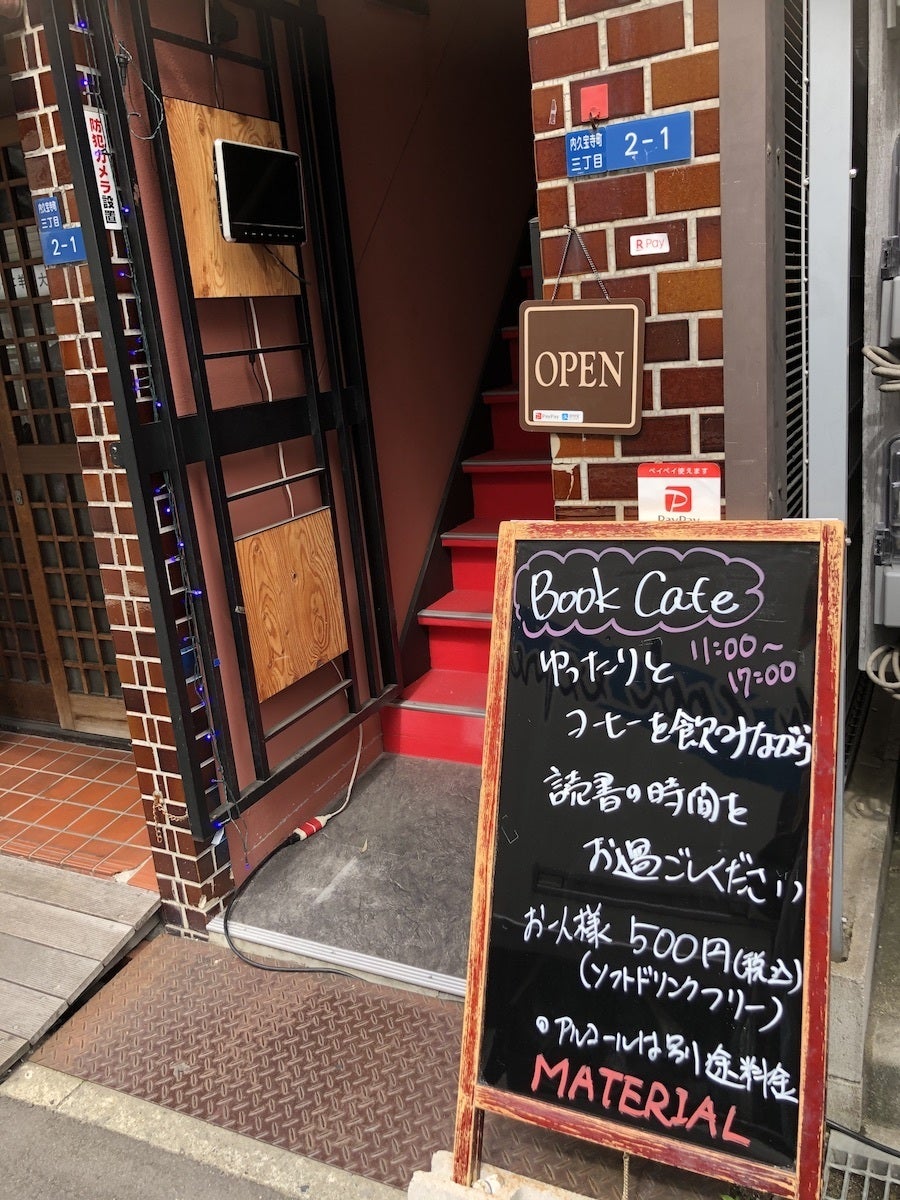 防犯カメラ設置
内久宝寺町
三丁目
2-1
内久宝寺町
三丁目
2-1
R Pay
OPEN
PayPay
ペイペイ使えます
PayPay
Book Cafe
11:00～
17:00
ゆったりと
コーヒーを飲みながら
読書の時間を
お過ごしください
お一人様 500円(税込)
(ソフトドリンクフリー)
○アルコールは別途料金
MATERIAL